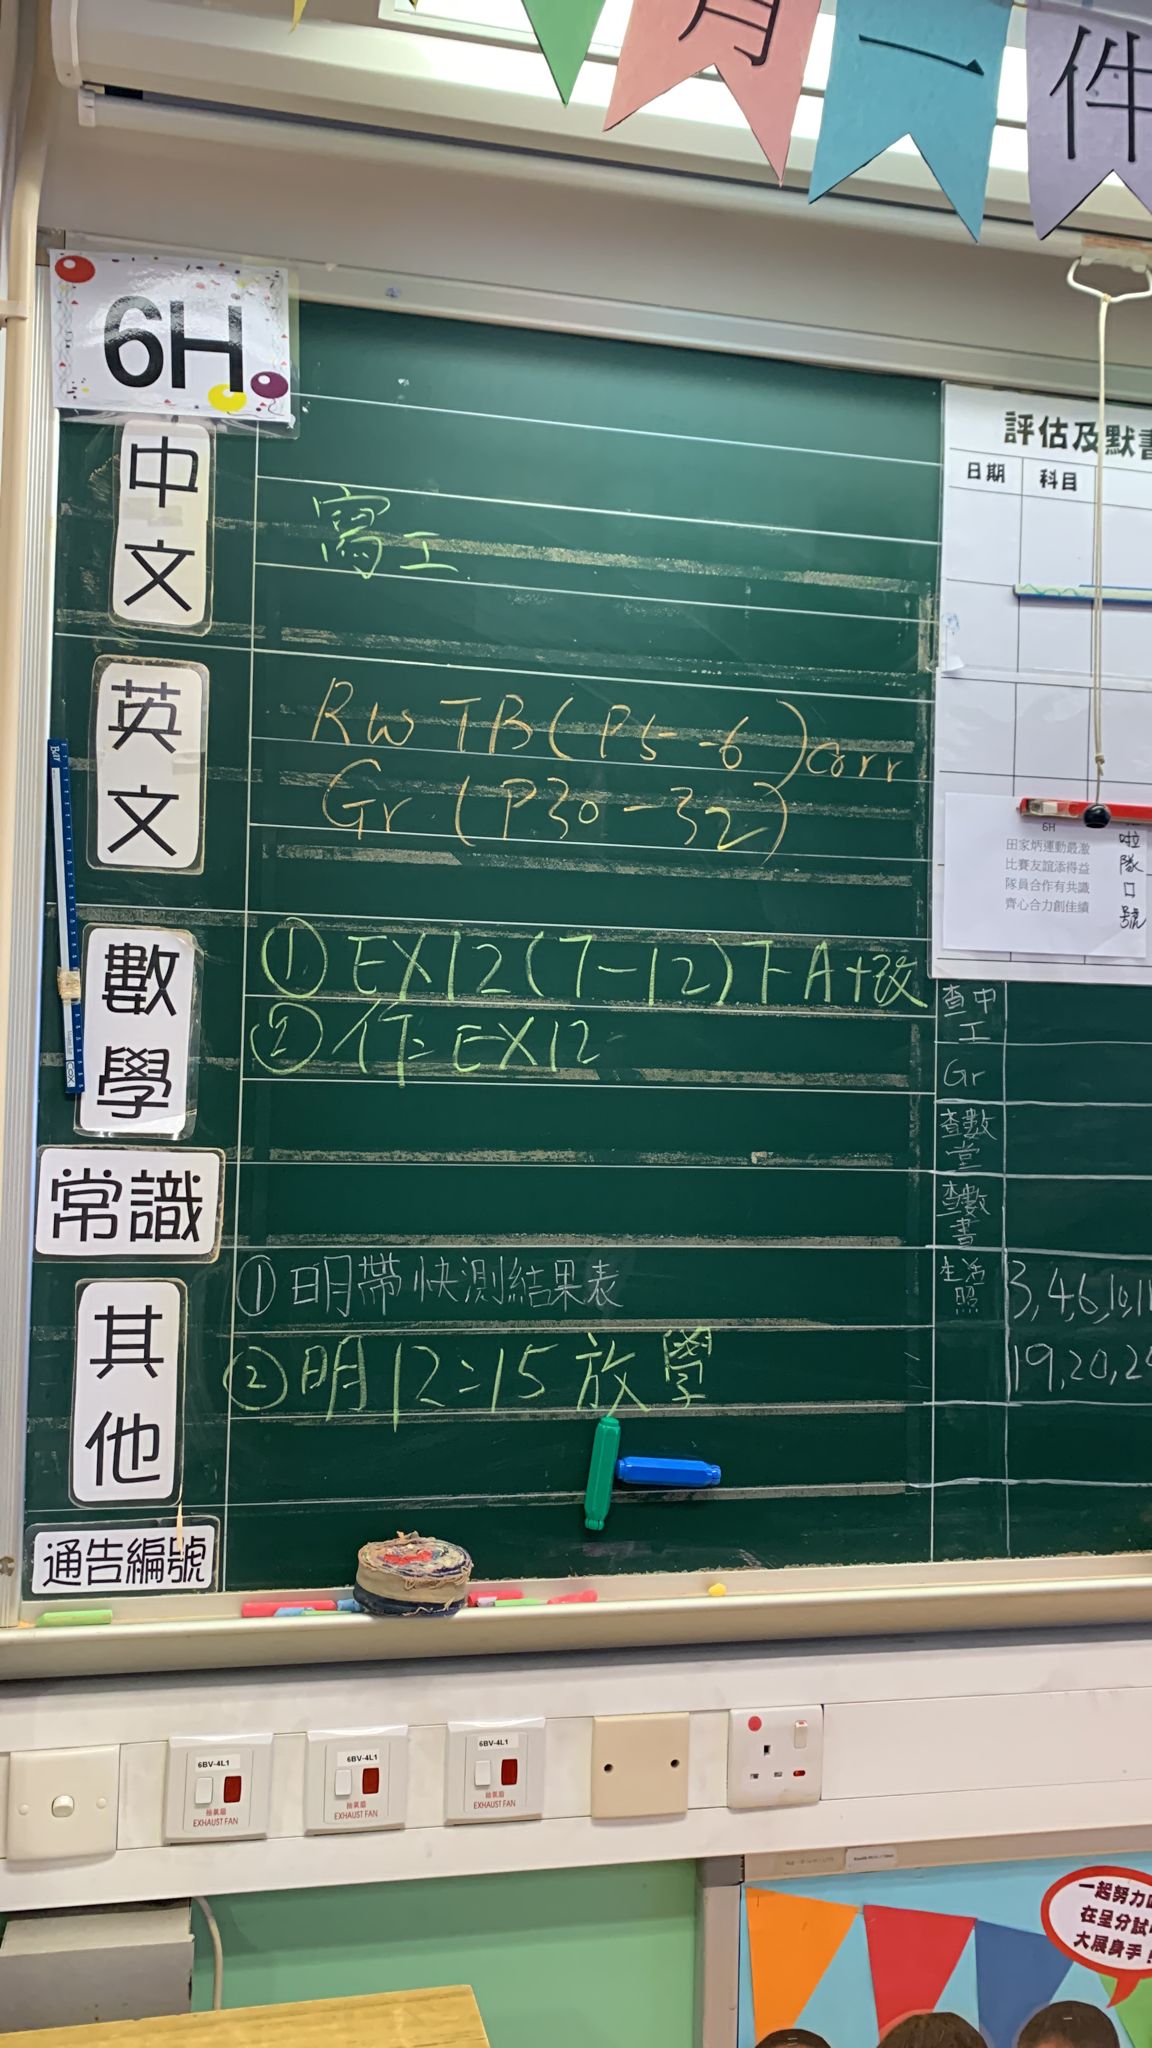 月 一 件
6H
評估及默書
日期 科目
中文
寫工
英文
RW TB (P5-6) corr
Gr (P30-32)
6H
田家炳運動最激
比賽友誼添得益
隊員合作有共識
齊心合力創佳績
啦隊口號
數學
① EX12 (7-12) TA+改
② 作=EX12
常識
其他
① 明帶快測結果表
② 明12:15放學
通告編號
查中工
Gr
查數堂
查數書
生活照
3,4,6,10,11
19,20,2
6BV-4L1
抽氣扇
EXHAUST FAN
6BV-4L1
抽氣扇
EXHAUST FAN
6BV-4L1
抽氣扇
EXHAUST FAN
一起努力
在呈分試
大展身手!